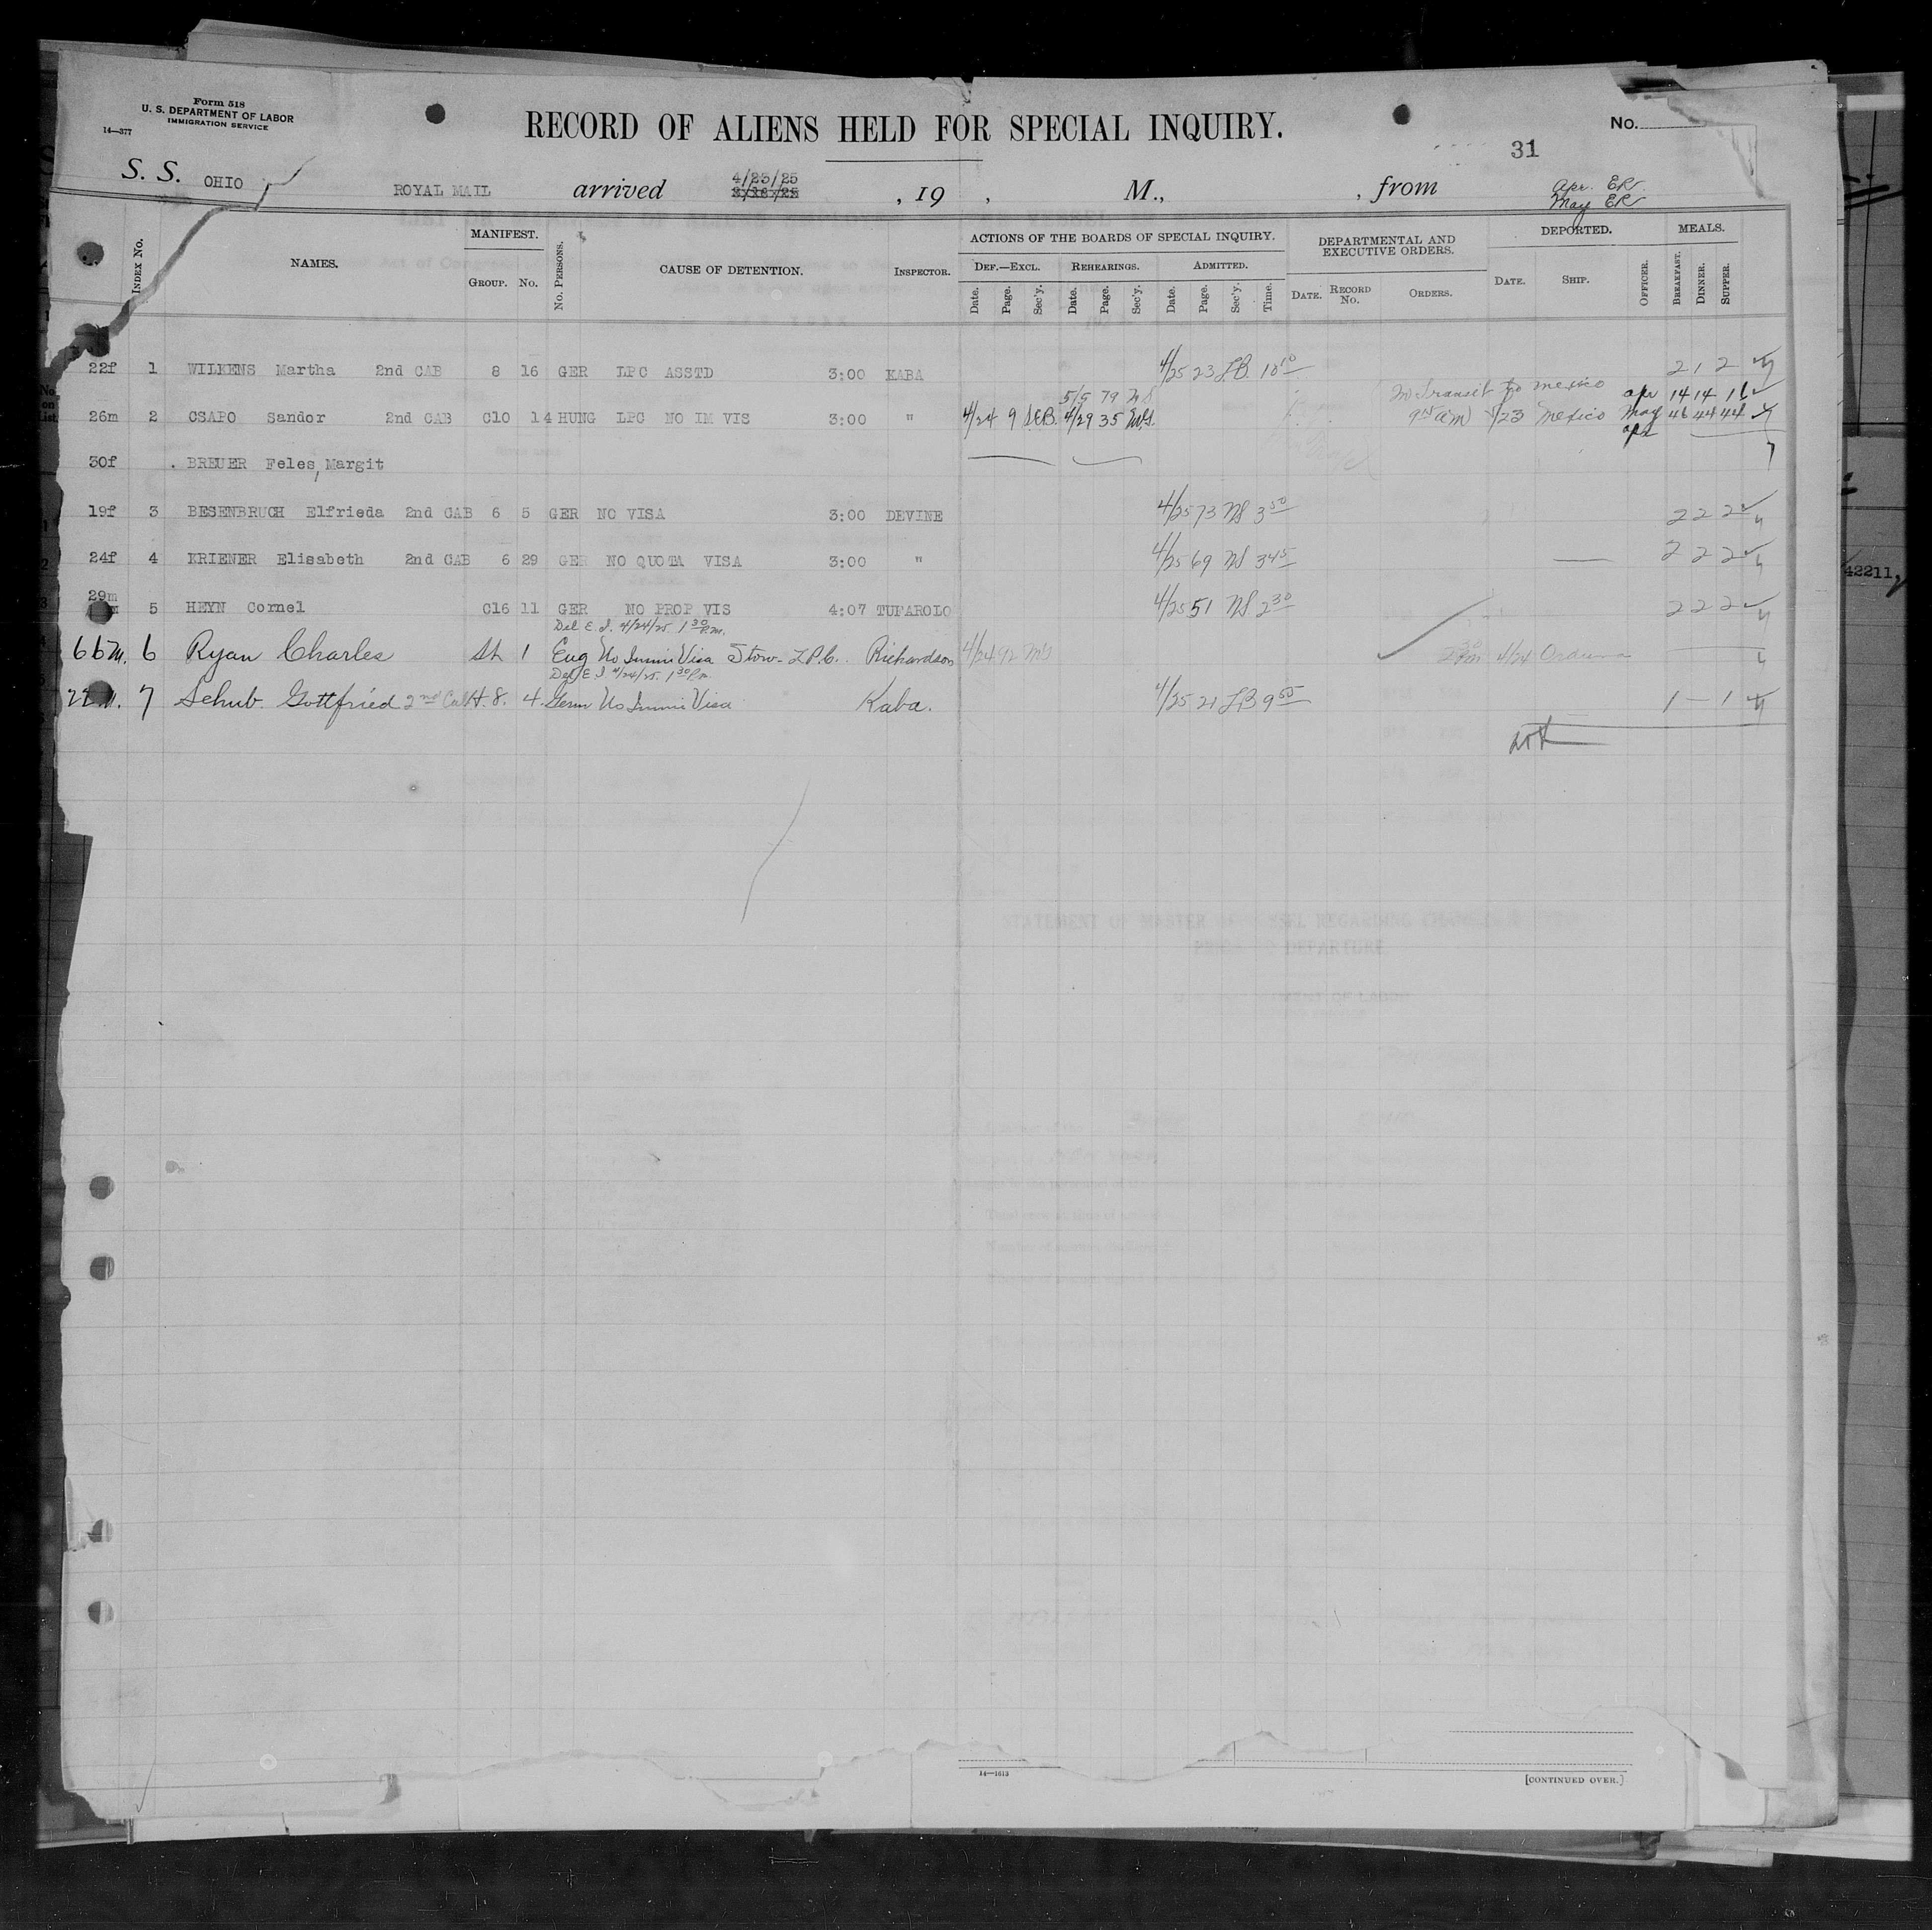 Form 518
U. S. DEPARTMENT OF LABOR
IMMIGRATION SERVICE
14—377
RECORD OF ALIENS HELD FOR SPECIAL INQUIRY.
No.
31
S. S. OHIO ROYAL MAIL arrived 4/23/25 , 19 , M., , from
Apr. ER
May ER
INDEX No. NAMES. MANIFEST. GROUP. No. No. PERSONS. CAUSE OF DETENTION. INSPECTOR.
ACTIONS OF THE BOARDS OF SPECIAL INQUIRY. DEF.—EXCL. REHEARINGS. ADMITTED.
Date. Page. Sec'y. Date. Page. Sec'y. Date. Page. Sec'y. Time.
DEPARTMENTAL AND EXECUTIVE ORDERS. DATE. RECORD No. ORDERS.
DEPORTED. DATE. SHIP. OFFICER.
MEALS. BREAKFAST. DINNER. SUPPER.
22f 1 WILKENS Martha 2nd CAB 8 16 GER LPC ASSTD 3:00 KABA 4/25 23 LB. 10 10 2 1 2
5/5 79 NS In Transit to Mexico apr 14 14 16
26m 2 CSAPO Sandor 2nd CAB C10 14 HUNG LPC NO IM VIS 3:00 " 4/24 9 4/29 35 am 23 Mexico May 46 44 44
30f BREUER Feles, Margit
19f 3 BESENBRUCH Elfrieda 2nd CAB 6 5 GER NO VISA 3:00 DEVINE 4/25 73 NS 3 50 2 2 2
24f 4 KRIENER Elisabeth 2nd CAB 6 29 GER NO QUOTA VISA 3:00 " 4/25 69 NS 3 45 2 2 2
29m 5 HEYN Cornel C16 11 GER NO PROP VIS 4:07 TUFAROLO 4/25 51 NS 2 30 2 2 2
Del E. I. 4/24/25. 1 30 P.m.
66 m. 6 Ryan Charles 1 Eng No Immi Visa Stow- L.P.C. Richardson 4/24 92 4/24 Orduna
Del E. I. 4/24/25. 1 30 P.m.
22 7 Schub Gottfried 2nd Cab H. 8. 4. Germ No Immi Visa Kaba. 4/25 21 LB 9 55 1 — 1
14—1613
[CONTINUED OVER.]
42211,
STATEMENT OF MASTER OF VESSEL REGARDING
PRIOR TO DEPARTURE